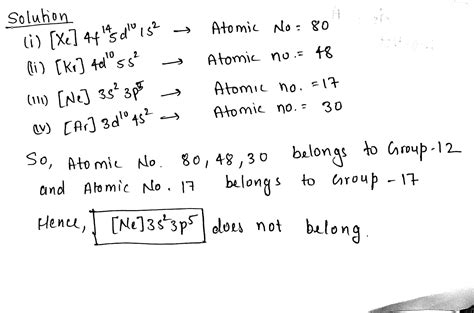 Solution
(i) [Xe] 4f¹⁴5d¹⁰ 1s² → Atomic No = 80
(ii) [Kr] 4d¹⁰ 5s² → Atomic no. = 48
(iii) [Ne] 3s² 3p⁵ → Atomic no. = 17
(iv) [Ar] 3d¹⁰ 4s² → Atomic no. = 30
So, Atomic No. 80, 48, 30 belongs to Group-12
and Atomic No. 17 belongs to Group - 17
Hence, [Ne]3s²3p⁵ does not belong.